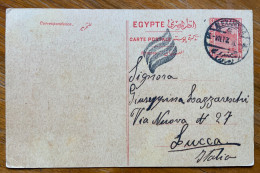 Correspondance.
EGYPTE
CARTE POSTALE
Signora
Giuseppina Lazzareschi
Via Nuova N 27
Lucca
Italia